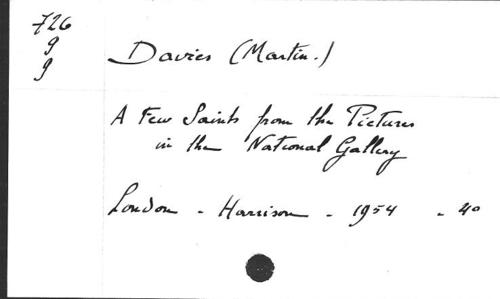 726
9
9
Davies (Martin.)
A Few Saints from the Pictures
in the National Gallery
London - Harrison - 1954 - 4o